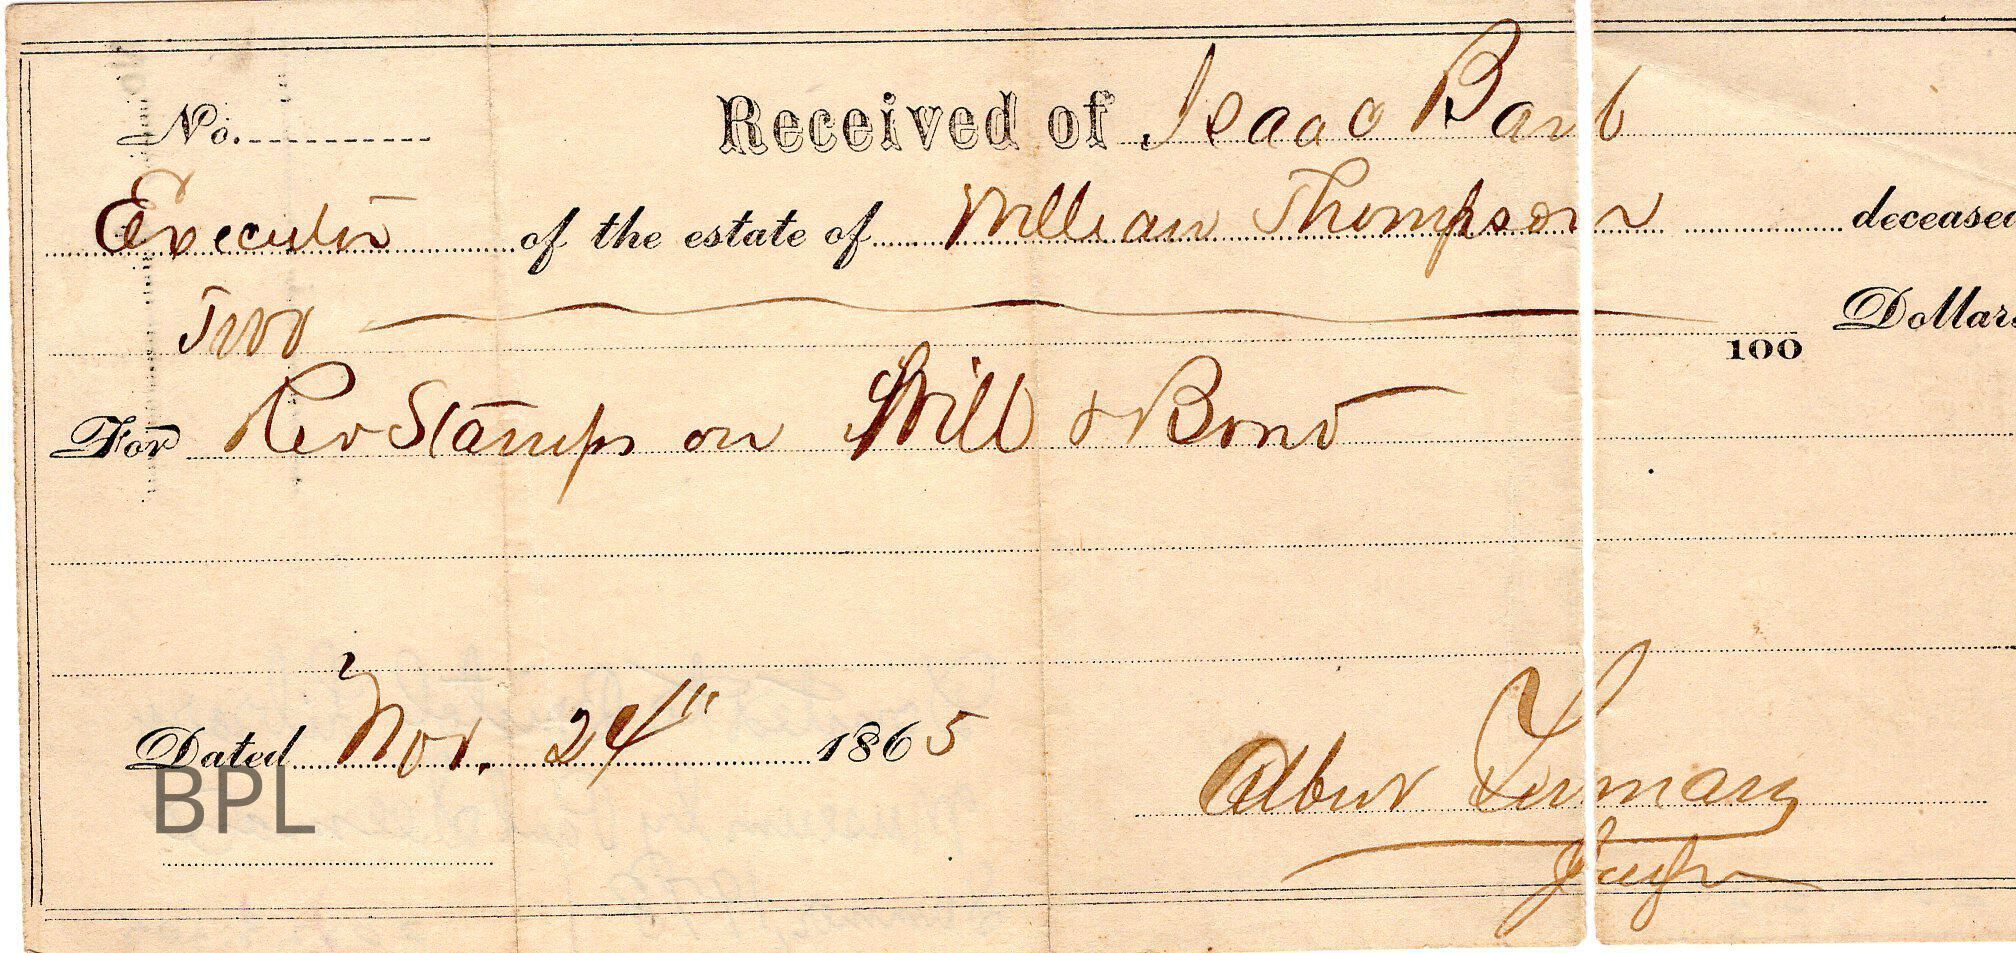 No. Received of Isaac Barb
Executor of the estate of William Thompson deceased
Two 100 Dollars
For Rev Stamps on Will & Bond
Dated Nov. 24" 1865
Albert
BPL
Judge